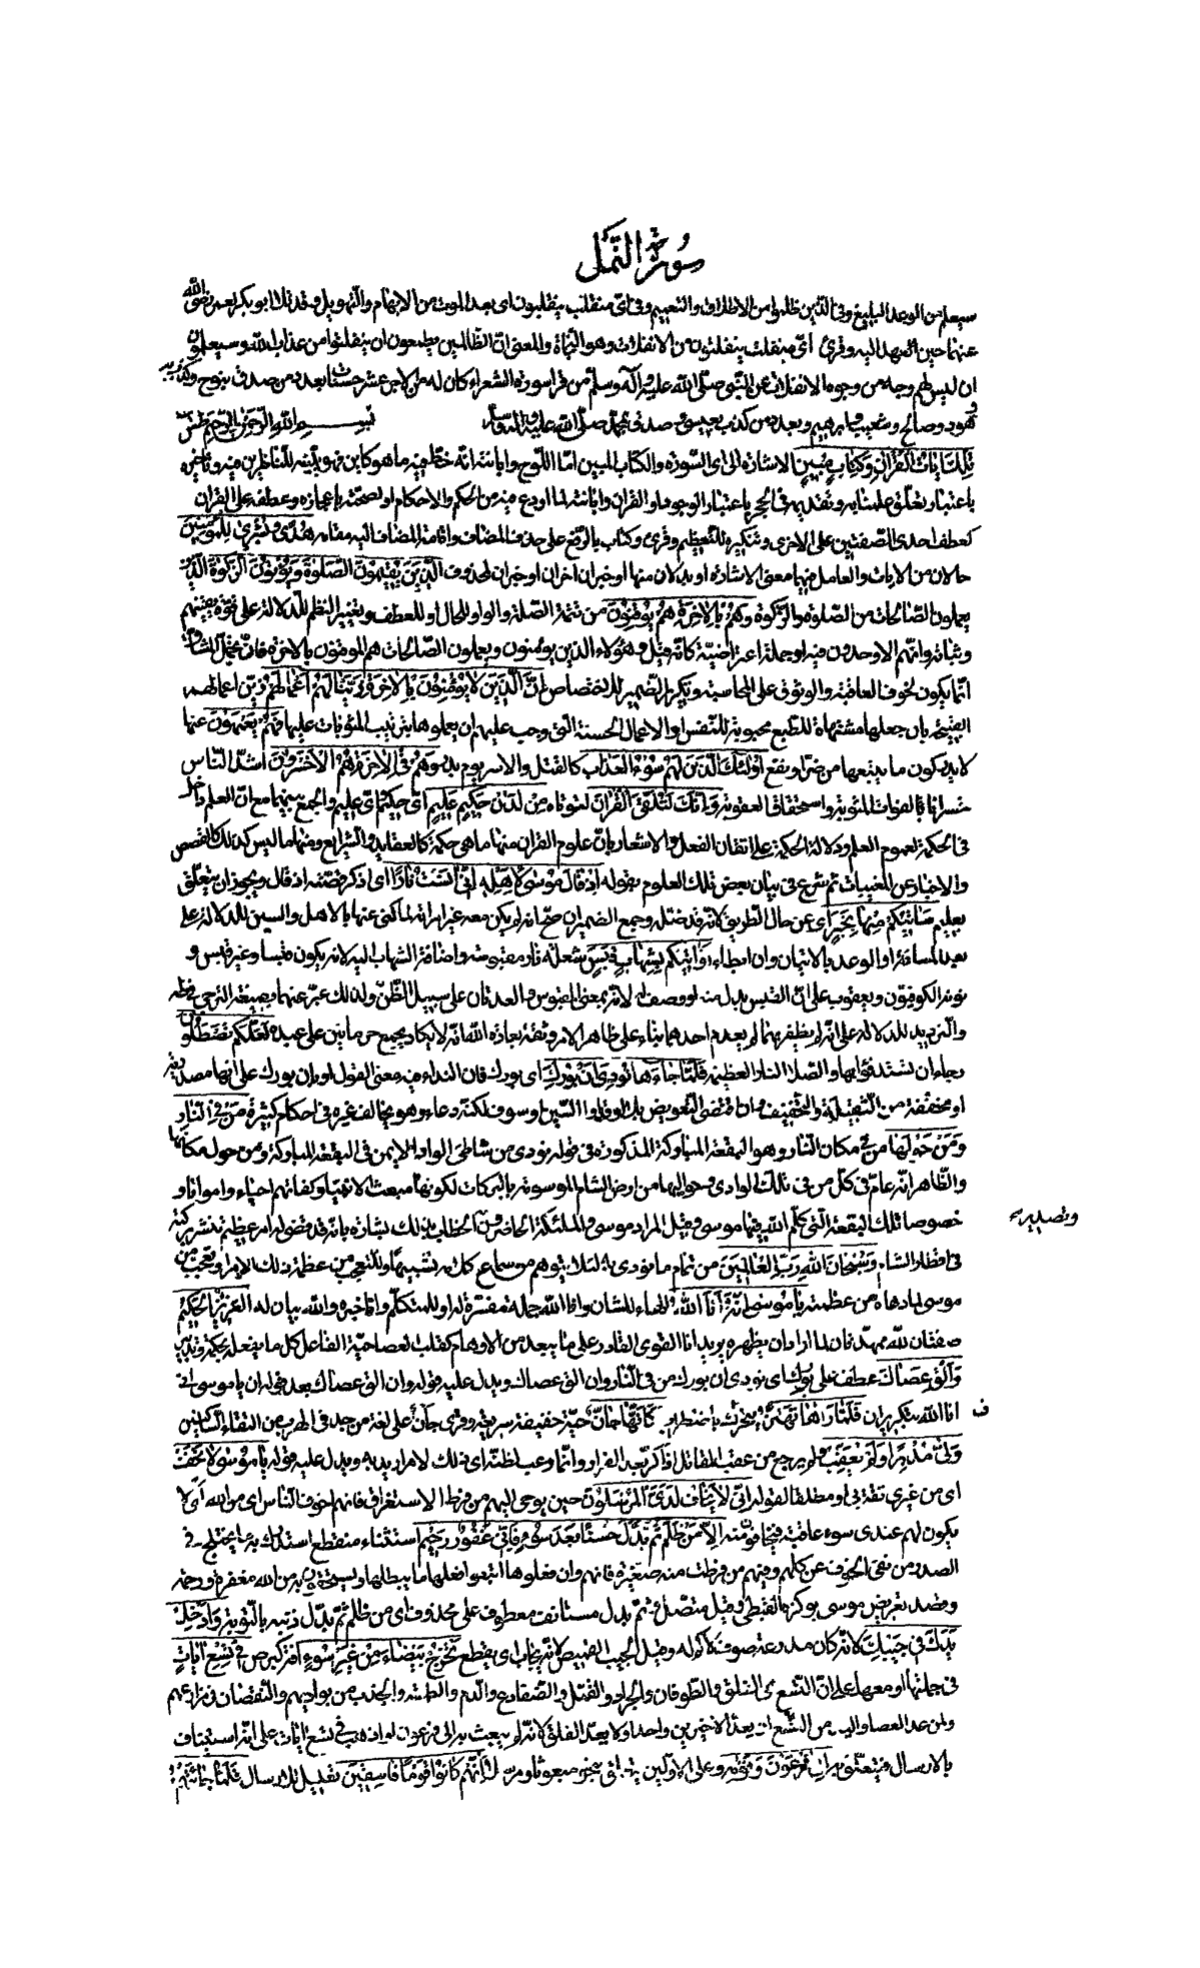 سورة النمل
سيعلم من الوعيد البليغ وفي الذين ظلموا من الاطلاق والتعميم وفي اى منقلب ينقلبون اى بعد الموت من الابهام والتهويل وقد تلاها ابو بكر لعمر رضى الله
عنهما حين عهد اليه وقرئ اىّ منفلت ينفلتون من الانفلات وهو النجاة والمعنى انّ الظالمين يطمعون ان ينفلتوا من عذاب الله وسيعلمون
ان ليس لهم وجه من وجوه الانفلات عن النبى صلّى الله عليه وآله وسلم من قرا سورة الشعراء كان له من الاجر عشر حسنات بعدد من صدق بنوح وكذب به
وهود وصالح وشعيب وابرهيم وبعدد من كذب بعيسى وصدق بمحمد صلّى الله عليه وآله بسم الله الرحمن الرحيم طس
تِلْكَ اٰيَاتُ الْقُرْاٰنِ وَكِتَابٍ مُبِينٍ الاشارة الى اى السورة والكتاب المبين امّا اللوح وابانته انّه خطّ فيه ما هو كاين فهو يبيّنه للناظرين فيه وتاخيره
باعتبار تعلّق علمنا به وتقديمه في الحجر باعتبار الوجود او القران وابانته لما اودع فيه من الحكم والاحكام او لصحّته باعجازه وعطفه على القران
كعطف احدى الصفتين على الاخرى وتنكيره للتعظيم وقرئ وكتاب بالرفع على حذف المضاف واقامة المضاف اليه مقامه هُدًى وَبُشْرٰى لِلْمُؤْمِنِينَ
حالان من الايات والعامل فيهما معنى الاشارة او بدلان منها او خبران اخران او خبران لمحذوف الَّذِينَ يُقِيمُونَ الصَّلٰوةَ وَيُؤْتُونَ الزَّكٰوةَ الذين
يعملون الصّالحات من الصّلوة والزكوة وَهُمْ بِالْاٰخِرَةِ هُمْ يُوقِنُونَ من تتمّة الصّلة والواو للحال او للعطف وتغيير النظم للدلالة على قوّة يقينهم
وثباته وانّهم الاوحدون فيه او جملة اعتراضيّة كانّه قيل وهؤلاء الذين يؤمنون ويعملون الصّالحات هم الموقنون بالاخرة فانّ تحمّل المشاقّ
انّما يكون لخوف العاقبة والوثوق على المحاسبة وتكرير الضمير للاختصاص اِنَّ الَّذِينَ لَا يُؤْمِنُونَ بِالْاٰخِرَةِ زَيَّنَّا لَهُمْ اَعْمَالَهُمْ زيّن اعمالهم
القبيحة بان جعلها مشتهاة للطبع محبوبة للنفس او الاعمال الحسنة التى وجب عليهم ان يعملوها بترتيب المثوبات عليها فَهُمْ يَعْمَهُونَ عنها
لا يدركون ما يتبعها من ضرّ او نفع اُولٰئِكَ الَّذِينَ لَهُمْ سُوءُ الْعَذَابِ كالقتل والاسر يوم بدر وَهُمْ فِى الْاٰخِرَةِ هُمُ الْاَخْسَرُونَ اشدّ النّاس
خسرانا لفوات المثوبة واستحقاق العقوبة وَاِنَّكَ لَتُلَقَّى الْقُرْاٰنَ لتؤتاه مِنْ لَدُنْ حَكِيمٍ عَلِيمٍ اىّ حكيم اىّ عليم والجمع بينهما مع انّ العلم داخل
في الحكمة لعموم العلم ودلالة الحكمة على اتقان الفعل والاشعار بانّ علوم القران منها ما هى حكمة كالعقايد والشرايع ومنها ما ليس كذلك كالقصص
والاخبار عن المغيبات ثم شرع في بيان بعض تلك العلوم بقوله اِذْ قَالَ مُوسٰى لِاَهْلِهِ اِنِّى اٰنَسْتُ نَارًا اى اذكر قصّته اذ قال ويجوز ان يتعلّق
بعليم سَاٰتِيكُمْ مِنْهَا بِخَبَرٍ اى عن حال الطريق لانّه قد ضلّه وجمع الضمير ان صحّ انه لم يكن معه غير امراته لما كنى عنها بالاهل والسين للدلالة على
بعد المسافة او الوعد بالاتيان وان ابطاء اَوْ اٰتِيكُمْ بِشِهَابٍ قَبَسٍ شعلة نار مقبوسة واضافة الشهاب اليه لانه يكون قبسا وغير قبس و
نونه الكوفيون ويعقوب على انّ القبس بدل منه او وصف له لانّه بمعنى المقبوس والعدتان على سبيل الظنّ ولذلك عبّر عنهما بصيغة الترجى في طه
والترديد للدلالة على انّه ان لم يظفر بهما لم يعدم احدهما بناء على ظاهر الامر وثقة بعادة الله انّه لا يكاد يجمع حرمانين على عبده لَعَلَّكُمْ تَصْطَلُونَ
رجاء ان تستدفؤا بها والصّلا النار العظيمة فَلَمَّا جَاءَهَا نُودِىَ اَنْ بُورِكَ اى بورك فان النداء فيه معنى القول او بان بورك على انها مصدرية
او مخففة من الثقيلة والتخفيف وان اقتضى التعويض بلا او قد او السين او سوف لكنّه دعاء وهو يخالف غيره في احكام كثيرة مَنْ فِى النَّارِ
وَمَنْ حَوْلَهَا من في مكان النار وهو البقعة المباركة المذكورة في قوله نودى من شاطئ الواد الايمن في البقعة المباركة ومن حول مكانها
والظاهر انّه عامّ في كلّ من في تلك الوادى وحواليها من ارض الشام الموسومة بالبركات لكونها مبعث الانبياء وكفاتهم احياء وامواتا و
خصوصا تلك البقعة التى كلّم الله فيها موسى وقيل المراد موسى والملئكة الحاضرون وتصدير الخطاب بذلك بشارة بانّه قد قضى له امر عظيم تنتشر بركته
في اقطار الشام وَسُبْحَانَ اللهِ رَبِّ الْعَالَمِينَ من تمام ما نودى به لئلا يتوهم من سماع كلامه تشبيها وللتعجيب من عظمة ذلك الامر او تعجّب من
موسى لما دهاه من عظمته يَا مُوسٰى اِنَّهُ اَنَا اللهُ الهاء للشان وانا الله جملة مفسّرة له او للمتكلّم وانا خبره والله بيان له الْعَزِيزُ الْحَكِيمُ
صفتان لله ممهّدتان لما اراد ان يظهره يريد انا القوى القادر على ما يبعد من الاوهام كقلب العصا حيّة الفاعل كل ما يفعله بحكمة وتدبير
وَاَلْقِ عَصَاكَ عطف على بورك اى نودى ان بورك من في النار وان الق عصاك ويدل عليه قوله وان الق عصاك بعد قوله ان يا موسى انى
انا الله بتكرير ان فَلَمَّا رَاٰهَا تَهْتَزُّ تتحرّك باضطراب كَاَنَّهَا جَانٌّ حيّة خفيفة سريعة وقرئ جأن على لغة من جد في الهرب من التقاء الساكنين
وَلّٰى مُدْبِرًا وَلَمْ يُعَقِّبْ ولم يرجع من عقب المقاتل اذا كرّ بعد الفرار وانّما رعب لظنّه ان ذلك لامر اريد به ويدل عليه قوله يَا مُوسٰى لَا تَخَفْ
اى من غيرى ثقة بى او مطلقا لقوله اِنِّى لَا يَخَافُ لَدَىَّ الْمُرْسَلُونَ حين يوحى اليهم من فرط الاستغراق فانهم اخوف الناس اى من الله او لا
يكون لهم عندى سوء عاقبة فيخافون منه اِلَّا مَنْ ظَلَمَ ثُمَّ بَدَّلَ حُسْنًا بَعْدَ سُوءٍ فَاِنِّى غَفُورٌ رَحِيمٌ استثناء منقطع استدرك به ما يختلج في
الصدر من نفى الخوف عن كلهم وفيهم من فرطت منه صغيرة فانهم وان فعلوها اتبعوا فعلها ما يبطلها ويستحقون به من الله مغفرة ورحمة
وقصد تعريض موسى بوكزه القبطى وقيل متصل وثمّ بدل مستانف معطوف على محذوف اى من ظلم ثمّ بدّل ذنبه بالتوبة وَاَدْخِلْ
يَدَكَ فِى جَيْبِكَ لانّه كان مدرعة صوف لا كمّ له وقيل الجيب القميص لانه يجاب اى يقطع تَخْرُجْ بَيْضَاءَ مِنْ غَيْرِ سُوءٍ افة كبرص فِى تِسْعِ اٰيَاتٍ
في جملتها او معها على انّ التسع هى الفلق والطوفان والجراد والقمّل والضفادع والدم والطمسة والجدب من بواديهم والنقصان في مزارعهم
ولمن عد العصا واليد من التسع ان يعدّ الاخيرين واحدا ولا يعدّ الفلق لانّه لم يبعث به الى فرعون او اذهب في تسع ايات على انّه استيناف
بالارسال فيتعلّق به اِلٰى فِرْعَوْنَ وَقَوْمِهِ وعلى الاولين يتعلق بنحو مبعوثا ومرسلا اِنَّهُمْ كَانُوا قَوْمًا فَاسِقِينَ تعليل للارسال فَلَمَّا جَاءَتْهُمْ